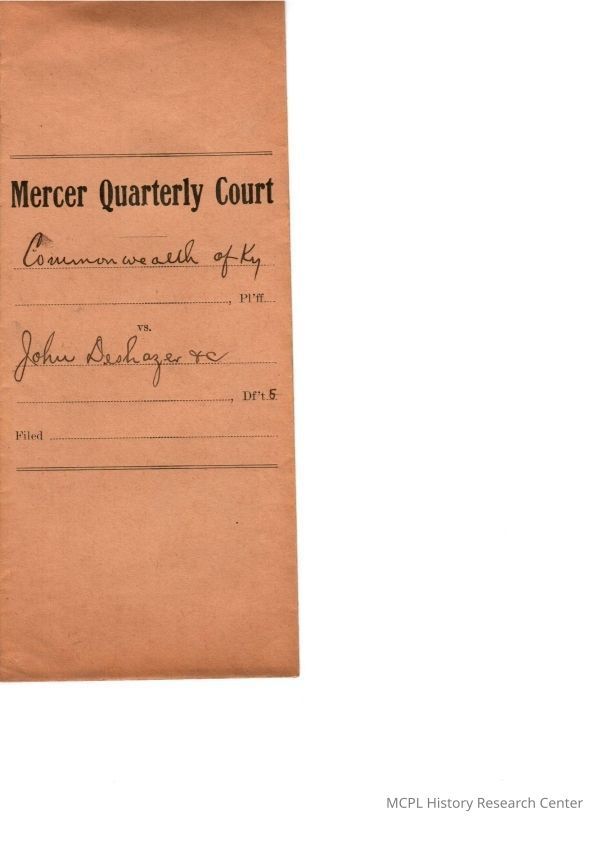 Mercer Quarterly Court
Commonwealth of Ky
, Pl'ff.
vs.
John Deshazer &c
, Df't.s
Filed
MCPL History Research Center